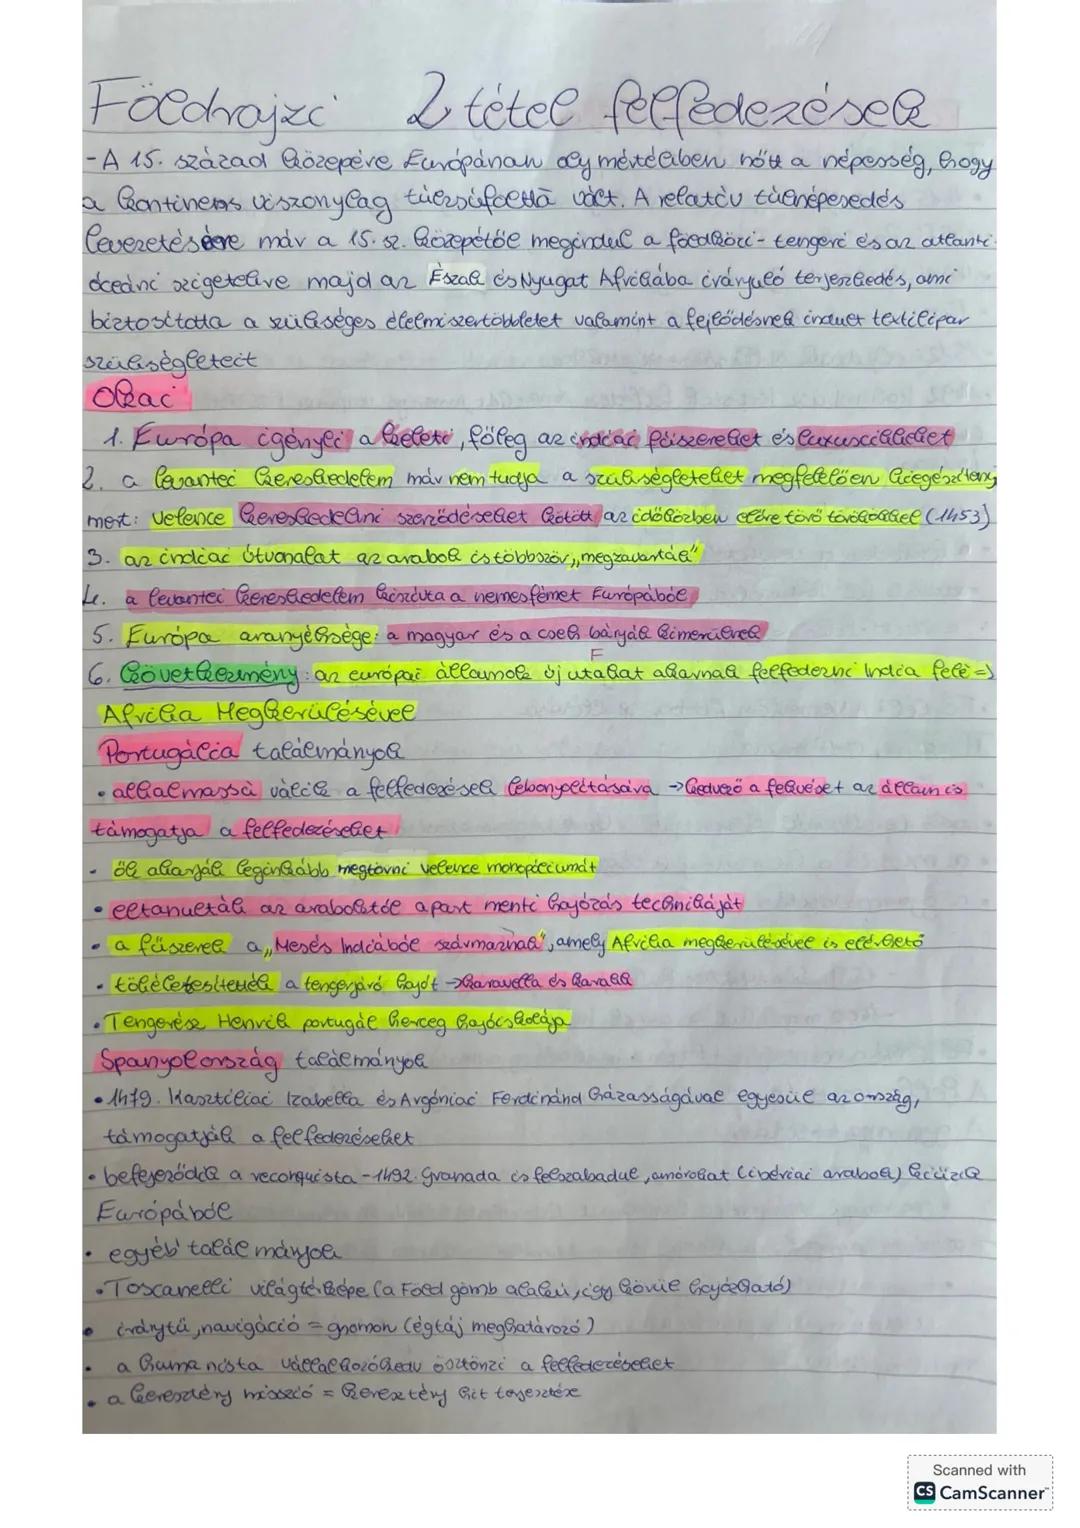 Földrajzi 2 tétel felfedezések
- A 15. század közepére Európának oly mértékben nőtt a népesség, hogy
a kontinens viszonylag túlzsúfolttá vált. A relatív túlnépesedés
levezetésére már a 15. sz. közepétől megindul a földközi-tengeri és az atlanti-
óceáni szigetekre majd az Észak és Nyugat Afrikába irányuló terjeszkedés, ami
biztosította a szükséges élelmiszertöbbletet valamint a fejlődésnek indult textilipar
szükségleteit
Okai
1. Európa igényli a keleti, főleg az indiai fűszereket és luxuscikkeket
2. a levantei kereskedelem már nem tudja a szükségleteket megfelelően kiegészíteni,
mert: Velence kereskedelmi szerződéseket kötött az időközben előre törő törökökkel (1453)
3. az indiai útvonalat az arabok is többször „megzavarták"
4. a levantei kereskedelem kiszívta a nemesfémet Európából
5. Európa aranyéhsége: a magyar és a cseh bányák kimerülnek
F
6. következmény: az európai államok új utakat akarnak felfedezni India felé =>
Afrika Megkerülésével
Portugália találmányok
• alkalmassá válik a felfedezések lebonyolítására → kedvező a fekvése + az állam is
támogatja a felfedezéseket
• ők akarják leginkább megtörni Velence monopóliumát
• eltanulták az araboktól a part menti hajózás technikáját
• a fűszerek a „Mesés Indiából származnak", amely Afrika megkerülésével is elérhető
• tökéletesítették a tengerjáró hajót → karavella és karakk
• Tengerész Henrik portugál herceg hajósiskolája
Spanyolország találmányok
• 1479. Kasztíliai Izabella és Argóniai Ferdinánd házasságával egyesül az ország,
támogatják a felfedezéseket
• befejeződik a reconquista - 1492. Granada is felszabadul, amórokat (ibériai arabok) kiűzik
Európából
• egyéb találmányok
• Toscanelli világtérképe (a Föld gömb alakú, így körül hajózható)
• iránytű, navigáció = gnomon (égtáj meghatározó)
• a humanista vállalkozókedv ösztönzi a felfedezéseket
• a keresztény misszió = keresztény hit terjesztése
Scanned with
CS CamScanner